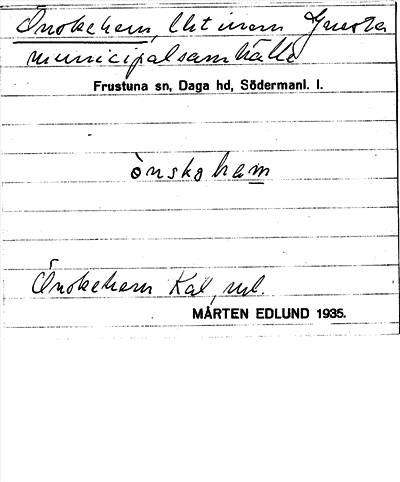 Önskehem, lht inom Gnesta
municipalsamhälle
Frustuna sn, Daga hd, Södermanl. l.
ö̀nskəhem
Önskehem Kal, ml.
MÅRTEN EDLUND 1935.